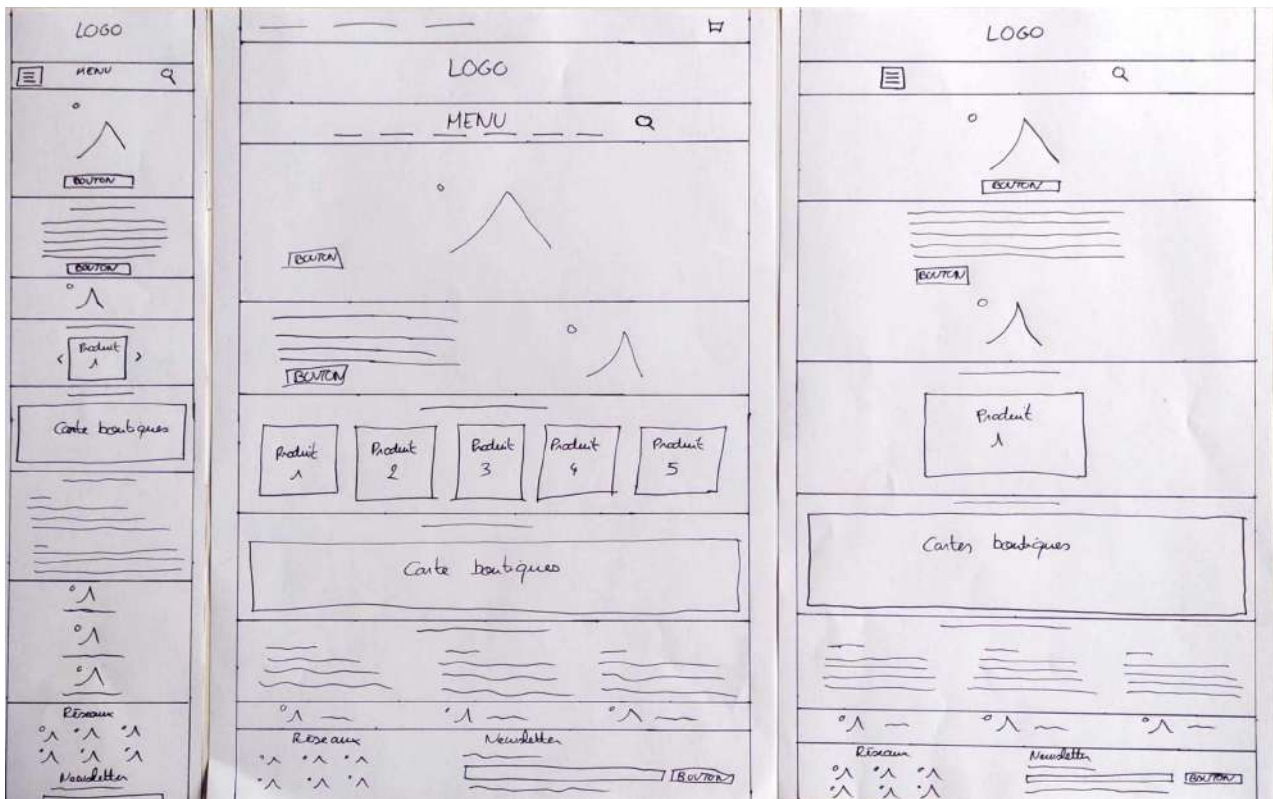 LOGO
MENU
BOUTON
BOUTON
Produit
1
Carte boutiques
Réseaux
Newsletter
LOGO
MENU
BOUTON
BOUTON
Produit
1
Produit
2
Produit
3
Produit
4
Produit
5
Carte boutiques
Réseaux
Newsletter
BOUTON
LOGO
BOUTON
BOUTON
Produit
1
Cartes boutiques
Réseaux
Newsletter
BOUTON